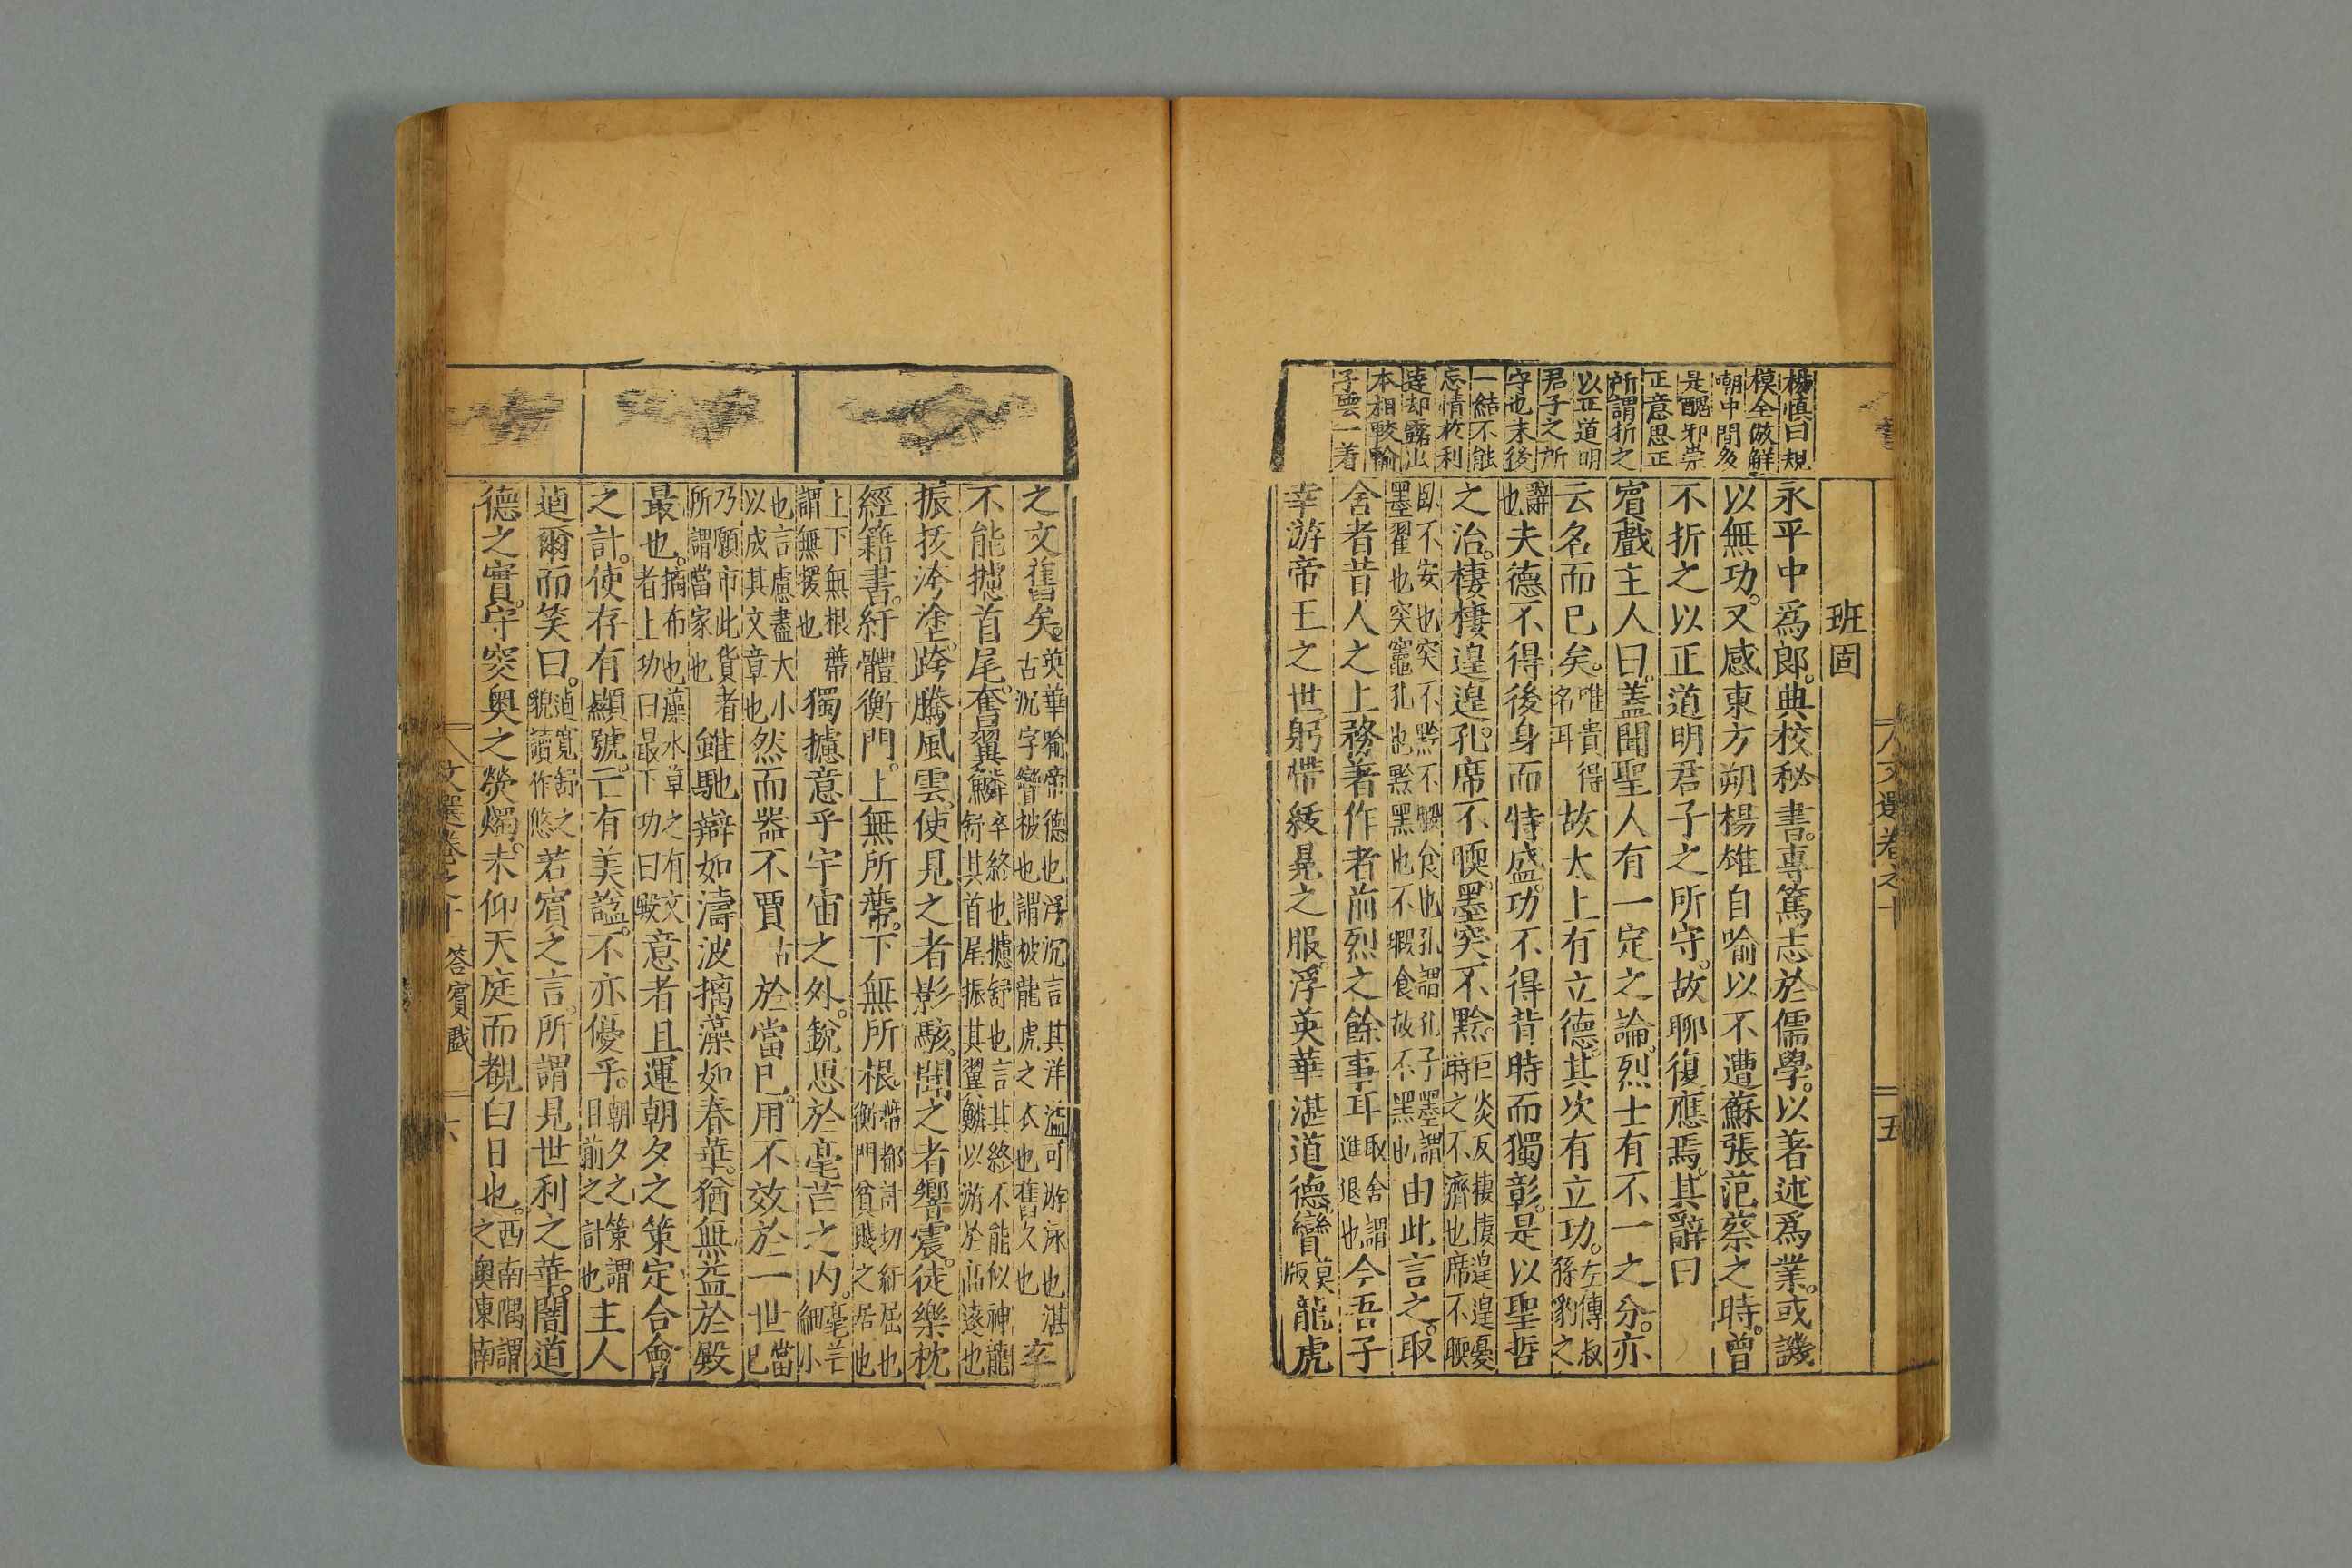 楊慎曰規
模全倣解
嘲中間多
是醖邪崇
正意思正
所謂折之
以正道明
君子之所
守也末後
一結不能
忘情於利
達却露出
本相較輸
子雲一着
文選卷之十
五
班固
永平中爲郎。典校秘書。專篤志於儒學。以著述爲業。或譏
以無功。又感東方朔楊雄自喻以不遭蘇張范蔡之時。曾
不折之以正道明君子之所守。故聊復應焉。其辭曰
賓戲主人曰。蓋聞聖人有一定之論。烈士有不一之分。亦
云名而已矣。唯貴得名耳故太上有立德。其次有立功。左傳叔孫豹之
辭也夫德不得後身而特盛。功不得背時而獨彰。是以聖哲
之治。棲棲遑遑。孔席不暝。墨突不黔。巨炎反棲棲遑遑憂時之不濟也席不暝
臥不安也突不黔不暇食也孔謂孔子墨謂墨翟也突竈孔也黔黑也不暇食故不黑也由此言之。取
舍者昔人之上務。著作者前烈之餘事耳取舍謂進退也今吾子
幸游帝王之世。躬帶紱冕之服。浮英華湛道德。矕莫版龍虎
之文舊矣。英華喻帝德也浮沉言其洋溢可游泳也湛古沉字矕被也謂被龍虎之衣也舊久也卒
不能攄首尾。奮翼鱗卒終也攄舒也言其終不能似神龍舒其首尾振其翼鱗以游於高遠也
振拔洿塗。跨騰風雲。使見之者影駭。聞之者響震。徒樂枕
經籍書。紆體衡門。上無所蔕。下無所根。蔕都計切紆屈也衡門貧賤之居也
上下無根蔕謂無援也獨攄意乎宇宙之外。銳思於毫芒之内。毫芒細小
也言慮盡大小以成其文章也然而器不賈古於當已。用不效於一世當已
乃願市此貨者所謂當家也雖馳辯如濤波摛藻如春華。猶無益於殿
最也。摛布也藻水草之有文者上功曰最下功曰殿意者且運朝夕之策定合會
之計。使存有顯號。亡有美諡。不亦優乎。朝夕之策謂目前之計也主人
逌爾而笑曰。逌寬舒之貌讀作悠若賓之言。所謂見世利之華。闇道
德之實。守穾奥之熒燭。未仰天庭而覩白日也。西南隅謂之奥東南
文選卷之十
答賓戲
六